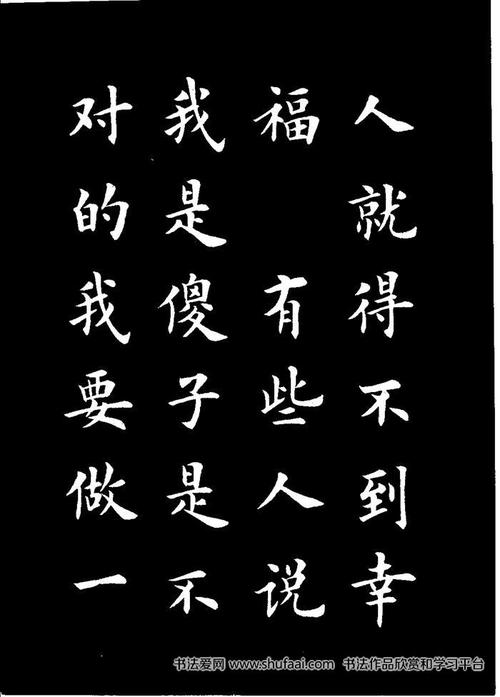 人就得不到幸
福 有些人说
我是傻子是不
对的我要做一
书法爱网 www.shufaai.com 书法作品欣赏和学习平台